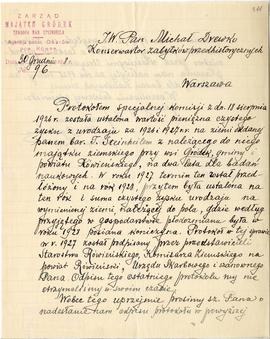 ZARZĄD
MAJĄTEM GRÓDEK
JW. Pan Michał Drewko
Konserwator zabytków przedhistorycznych
Warszawa
Protokołem specjalnej Komisji z dn 18 sierpnia
1926 r. została ustalona wartość pieniężna czystego
zysku z urodzaju za 1926 i 1927 r. na ziemi oddanej
przez bar. F. Steinheil z należącego do niego
majątku ziemskiego przy wsi Grodek, gminy i
powiatu Rówieńskiego, na dwa lata dla badań
naukowych. W roku 1927 termin ten został przed-
łożony i na rok 1928, przytem była ustalona na
ten rok i suma czystego zysku urodzaju na
wymienionej ziemi należącej do pola, gdzie według
przyjętego w Gospodarstwie płodozmianu była w
roku 1928 posiana koniczyna. Protokół w tej sprawie
w r. 1927 został podpisany przez przedstawicieli
Starostwa Rówieńskiego, Komisarza Ziemskiego na
powiat Rówieński, Urzędu Skarbowego i szanownego
Pana. Odpisu tego ostatniego protokołu my nie
otrzymaliśmy w swoim czasie.
Wobec tego uprzejmie prosimy sz. Pana o
nadesłanie nam odpisu protokołu w powyższej